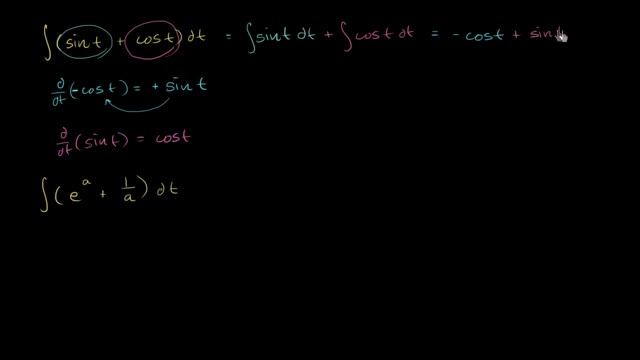 ∫(sin t + cos t) dt = ∫ sin t dt + ∫ cos t dt = - cos t + sin t
d/dt (-cos t) = + sin t
d/dt (sin t) = cos t
∫(e^a + 1/a) dt